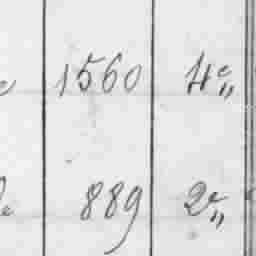 1560 4e„
889 2e„